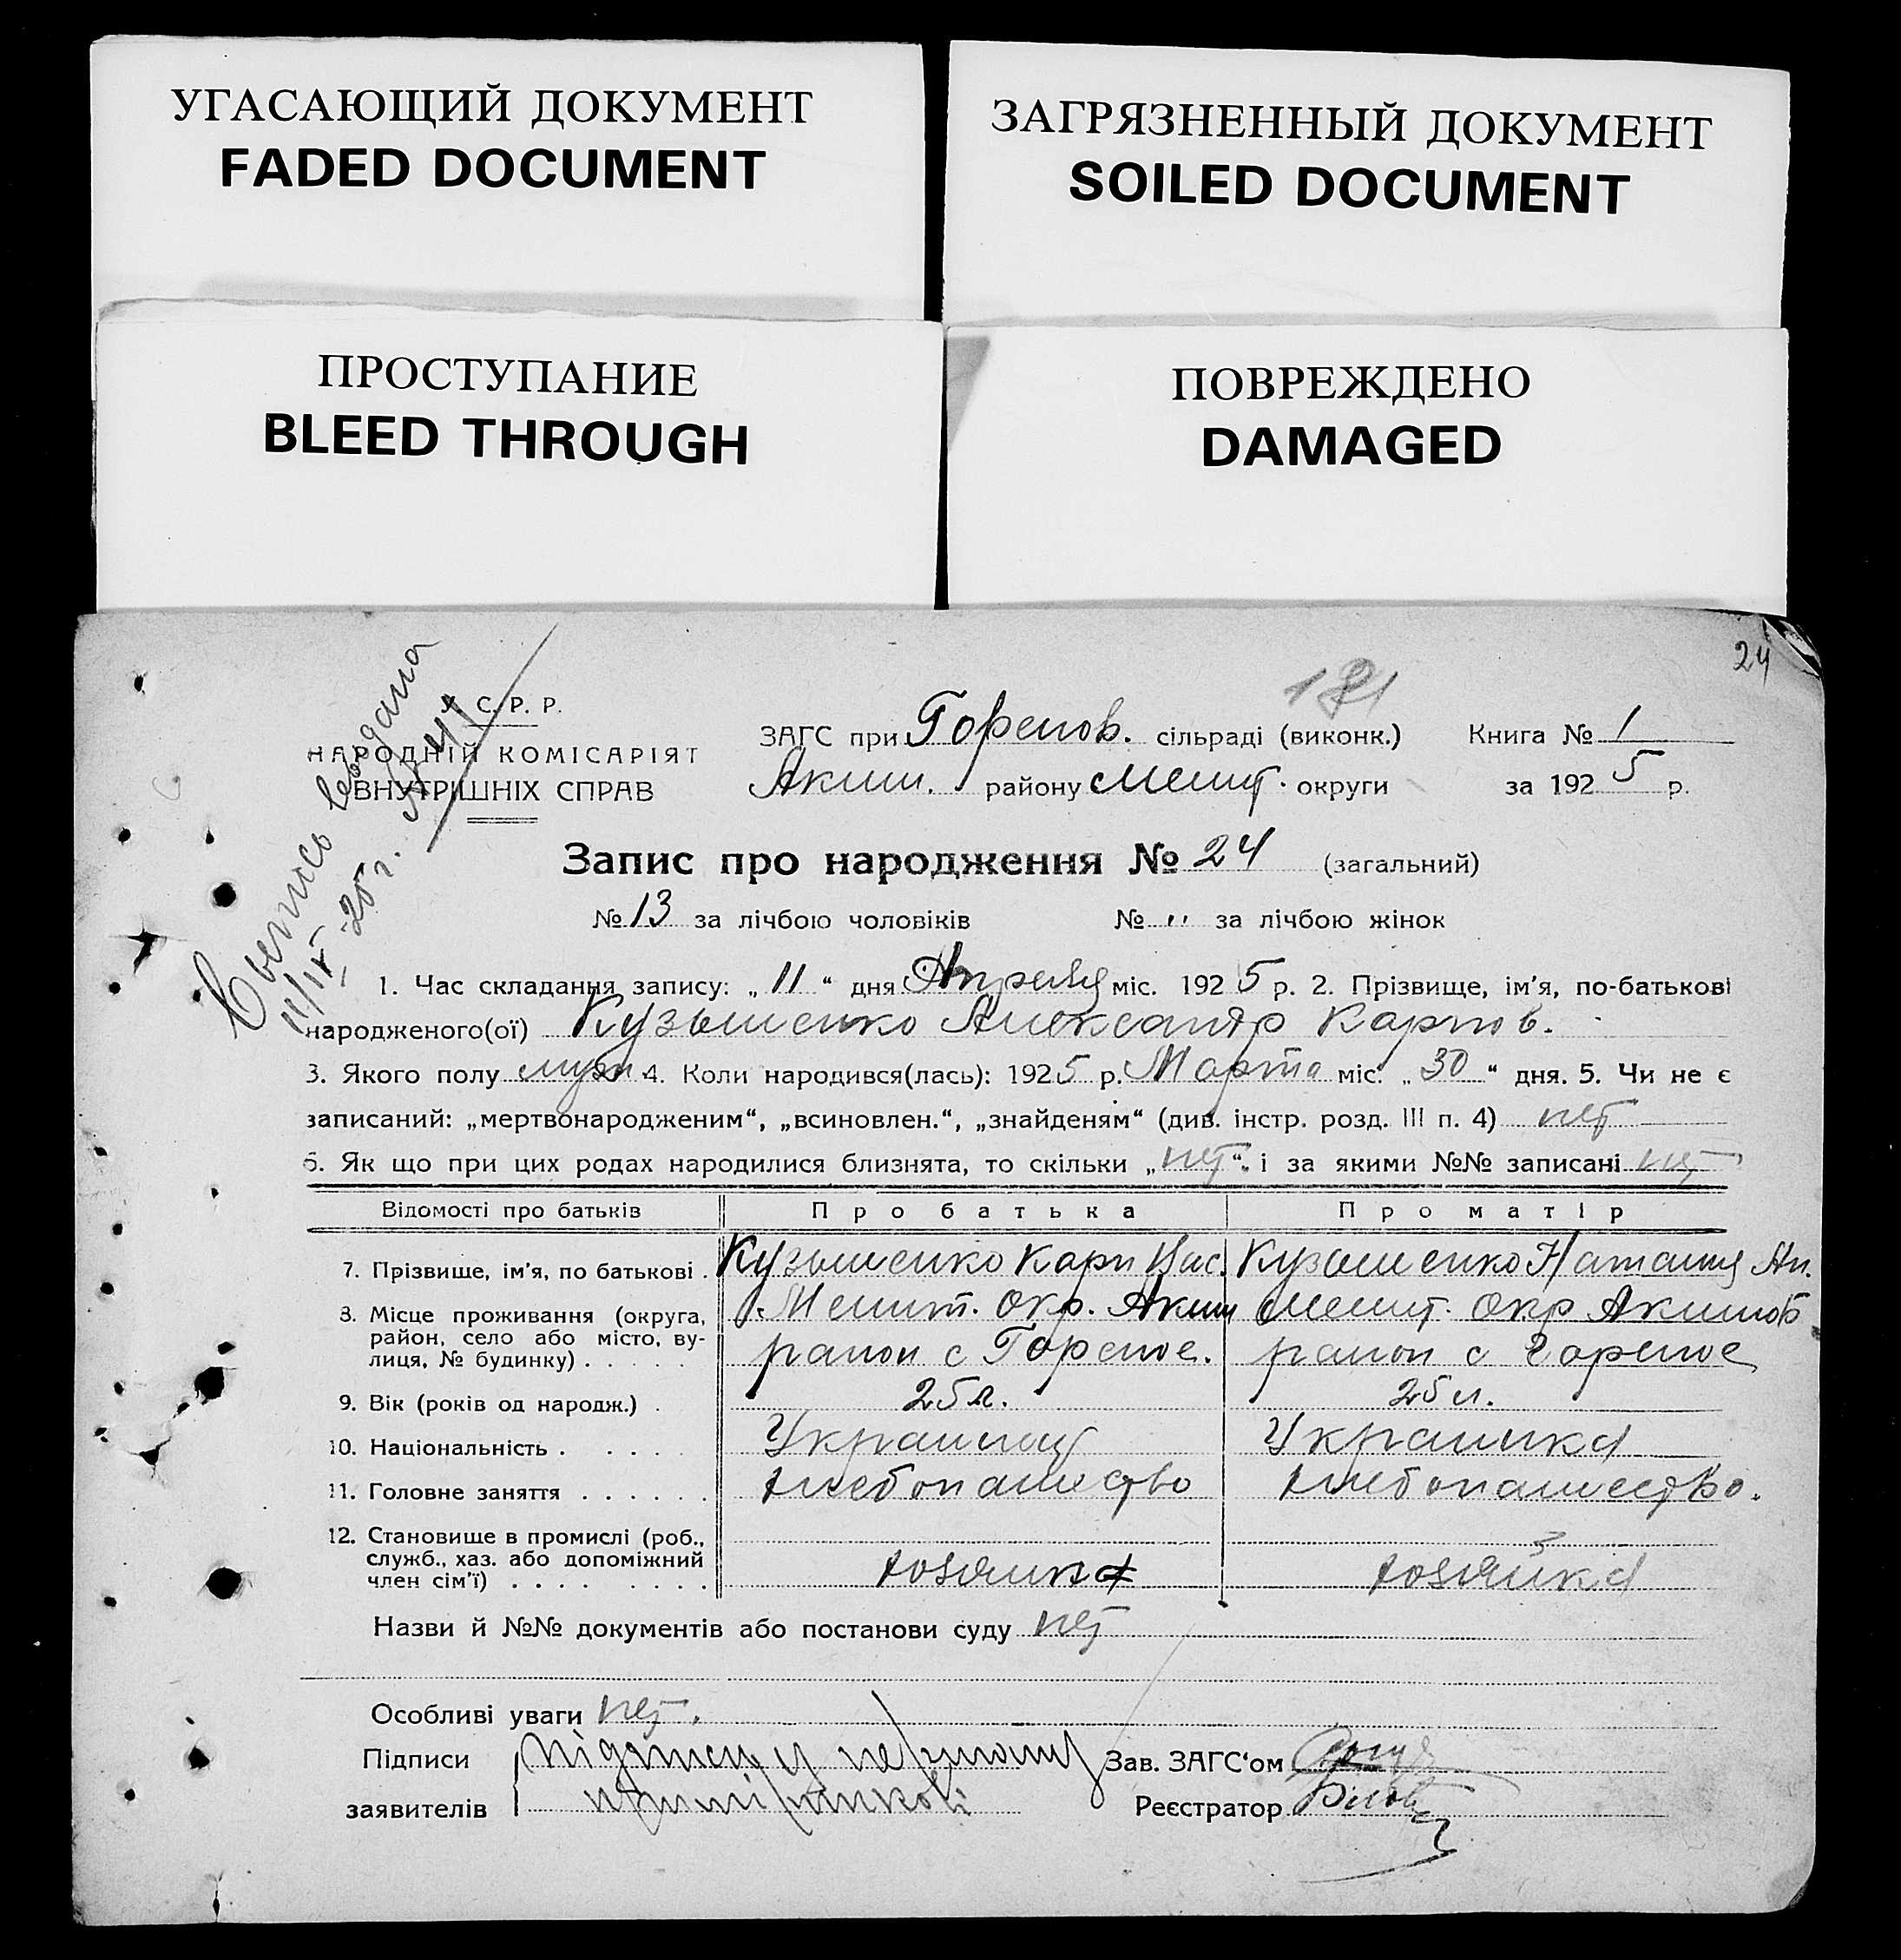 УГАСАЮЩИЙ ДОКУМЕНТ
FADED DOCUMENT
ЗАГРЯЗНЕННЫЙ ДОКУМЕНТ
SOILED DOCUMENT
ПРОСТУПАНИЕ
BLEED THROUGH
ПОВРЕЖДЕНО
DAMAGED
24
181
У. С. Р. Р.
НАРОДНІЙ КОМІСАРІЯТ
ВНУТРІШНІХ СПРАВ
выдана
11/IV-25 г.
ЗАГС при Горенов. сільраді (виконк.) Книга № 1
Аким. району Мелит. округи за 1925 р.
Запис про народження № 24 (загальний)
№ 13 за лічбою чоловіків № " за лічбою жінок
1. Час складання запису: „ 11 “ дня Апреля міс. 1925 р. 2. Прізвище, ім’я, по-батькові
народженого(ої) Кузьменко Александр Карпов.
3. Якого полу муж. 4. Коли народився(лась): 1925 р. Марта міс. „ 30 “ дня. 5. Чи не є
записаний: „мертвонародженим“, „всиновлен.“, „знайденям“ (див. інстр. розд. III п. 4) нет
6. Як що при цих родах народилися близнята, то скільки „нет“ і за якими №№ записані нет
Відомості про батьків Про батька Про матір
7. Прізвище, ім’я, по батькові . Кузьменко Карп Вас. Кузьменко Наталия Ан.
8. Місце проживання (округа, Мелит. окр. Аким Мелит. окр Акимов
район, село або місто, ву-
лиця, № будинку) . . . . . район с Горелое. район с Горелое
9. Вік (років од народж.) . 25 л. 25 л.
10. Національність . . . . . Украинец Украинка
11. Головне заняття . . . . . . хлебопашество хлебопашество.
12. Становище в промислі (роб.,
служб., хаз. або допоміжний
член сім’ї) . . . . . . . . . хозяин хозяйка
Назви й №№ документів або постанови суду нет
Особливі уваги нет.
Підписи Зав. ЗАГС‘ом
заявителів Реєстратор